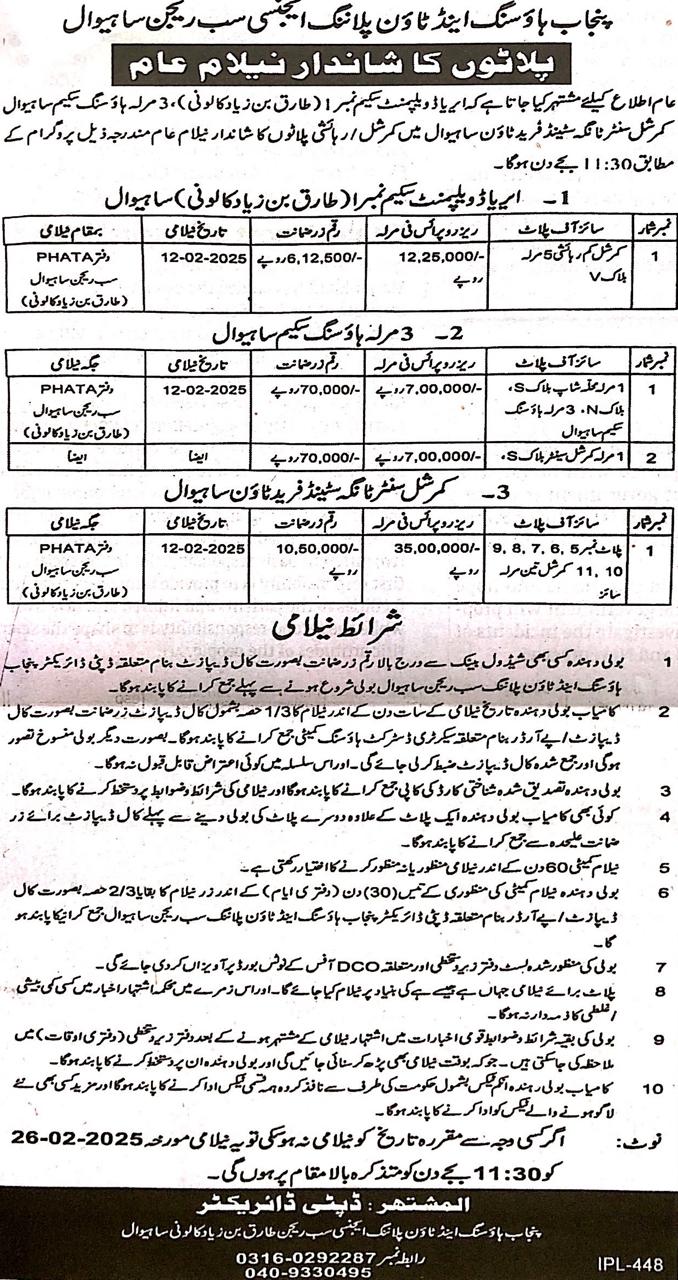 پنجاب ہاؤسنگ اینڈ ٹاؤن پلاننگ ایجنسی سب ریجن ساہیوال
پلاٹوں کا شاندار نیلام عام
عام اطلاع کیلئے مشتہر کیا جاتا ہے کہ ایریا ڈویلپمنٹ سکیم نمبر 1 (طارق بن زیاد کالونی)، 3 مرلہ ہاؤسنگ سکیم ساہیوال
کمرشل سنٹر ٹانگہ سٹینڈ فرید ٹاؤن ساہیوال میں کمرشل / رہائشی پلاٹوں کا شاندار نیلام عام مندرجہ ذیل پروگرام کے
مطابق 11:30 بجے دن ہوگا۔
1۔ ایریا ڈویلپمنٹ سکیم نمبر 1 (طارق بن زیاد کالونی) ساہیوال
نمبر شمار سائز آف پلاٹ ریزرو پرائس فی مرلہ رقم زر ضمانت تاریخ نیلامی بمقام نیلامی
1 کمرشل کم رہائشی 5 مرلہ 12,25,000/- 6,12,500/- روپے 12-02-2025 دفتر PHATA
بلاک V روپے سب ریجن ساہیوال
(طارق بن زیاد کالونی)
2۔ 3 مرلہ ہاؤسنگ سکیم ساہیوال
نمبر شمار سائز آف پلاٹ ریزرو پرائس فی مرلہ رقم زر ضمانت تاریخ نیلامی جگہ نیلامی
1 1 مرلہ محلہ شاپ بلاک S، 7,00,000/- روپے 70,000/- روپے 12-02-2025 دفتر PHATA
بلاک N، 3 مرلہ ہاؤسنگ سب ریجن ساہیوال
سکیم ساہیوال (طارق بن زیاد کالونی)
2 1 مرلہ کمرشل سینٹر بلاک S، 7,00,000/- روپے 70,000/- روپے ایضا ایضا
3۔ کمرشل سنٹر ٹانگہ سٹینڈ فرید ٹاؤن ساہیوال
نمبر شمار سائز آف پلاٹ ریزرو پرائس فی مرلہ رقم زر ضمانت تاریخ نیلامی جگہ نیلامی
1 پلاٹ نمبر 5, 6, 7, 8, 9 35,00,000/- 10,50,000/- 12-02-2025 دفتر PHATA
10, 11 کمرشل تین مرلہ روپے روپے سب ریجن ساہیوال
سائز (طارق بن زیاد کالونی)
شرائط نیلامی
1 بولی دہندہ کسی بھی شیڈول بینک سے درج بالا رقم زر ضمانت بصورت کال ڈیپازٹ بنام متعلقہ ڈپٹی ڈائریکٹر پنجاب
ہاؤسنگ اینڈ ٹاؤن پلاننگ سب ریجن ساہیوال بولی شروع ہونے سے پہلے جمع کرانے کا پابند ہوگا۔
2 کامیاب بولی دہندہ تاریخ نیلامی کے سات دن کے اندر نیلام کا 1/3 حصہ بشمول کال ڈیپازٹ زر ضمانت بصورت کال
ڈیپازٹ / پے آرڈر بنام متعلقہ سیکرٹری ڈسٹرکٹ ہاؤسنگ کمیٹی جمع کرانے کا پابند ہوگا۔ بصورت دیگر بولی منسوخ تصور
ہوگی اور جمع شدہ کال ڈیپازٹ ضبط کرلی جائے گی۔ اور اس سلسلہ میں کوئی اعتراض قابل قبول نہ ہوگا۔
3 بولی دہندہ تصدیق شدہ شناختی کارڈ کی کاپی جمع کرانے کا پابند ہوگا اور نیلامی کی شرائط و ضوابط پر دستخط کرنے کا پابند ہوگا۔
4 کوئی بھی کامیاب بولی دہندہ ایک پلاٹ کے علاوہ دوسرے پلاٹ کی بولی دینے سے پہلے کال ڈیپازٹ برائے زر
ضمانت علیحدہ سے جمع کرانے کا پابند ہوگا۔
5 نیلام کمیٹی 60 دن کے اندر نیلامی منظور یا نہ منظور کرنے کا اختیار رکھتی ہے۔
6 بولی دہندہ نیلام کمیٹی کی منظوری کے تیس (30) دن (دفتری ایام) کے اندر زر نیلام کا بقایا 2/3 حصہ بصورت کال
ڈیپازٹ / پے آرڈر بنام متعلقہ ڈپٹی ڈائریکٹر پنجاب ہاؤسنگ اینڈ ٹاؤن پلاننگ سب ریجن ساہیوال جمع کرانیکا پابند ہو
گا۔
7 بولی کی منظور شدہ لسٹ دفتر زیر دستخطی اور متعلقہ DCO آفس کے نوٹس بورڈ پر آویزاں کر دی جائے گی۔
8 پلاٹ برائے نیلامی جہاں ہے جیسے ہے کی بنیاد پر نیلام کیا جائے گا۔ اور اس زمرے میں محکمہ اشتہار اخبار میں کسی کمی بیشی
/ غلطی کا ذمہ دار نہ ہوگا۔
9 بولی کی بقیہ شرائط و ضوابط قومی اخبارات میں اشتہار نیلامی کے مشتہر ہونے کے بعد دفتر زیر دستخطی (دفتری اوقات) میں
ملاحظہ کی جاسکتی ہیں۔ جو کہ بوقت نیلامی بھی پڑھ کر سنائی جائیں گی اور بولی دہندہ ان پر دستخط کرنے کا پابند ہوگا۔
10 کامیاب بولی دہندہ انکم ٹیکس بشمول حکومت کی طرف سے نافذ کردہ ہر قسمی ٹیکس ادا کرنے کا پابند ہوگا اور مزید کسی بھی نئے
لاگو ہونے والے ٹیکس کو ادا کرنے کا پابند ہوگا۔
نوٹ: اگر کسی وجہ سے مقررہ تاریخ کو نیلامی نہ ہوسکی تو یہ نیلامی مورخہ 26-02-2025
کو 11:30 بجے دن کو متذکرہ بالا مقام پر ہوں گی۔
المشتہر: ڈپٹی ڈائریکٹر
پنجاب ہاؤسنگ اینڈ ٹاؤن پلاننگ ایجنسی سب ریجن طارق بن زیاد کالونی ساہیوال
رابطہ نمبر 0316-0292287
040-9330495
IPL-448